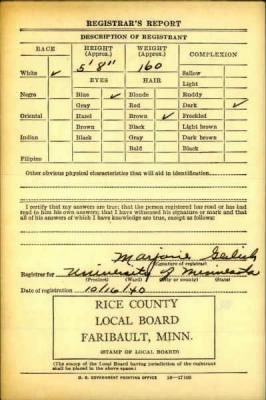 REGISTRAR'S REPORT
DESCRIPTION OF REGISTRANT
RACE HEIGHT (Approx.) WEIGHT (Approx.) COMPLEXION
White ✓ 5' 8" 160 Sallow
EYES HAIR Light
Negro Blue ✓ Blonde Ruddy
Gray Red Dark ✓
Oriental Hazel Brown ✓ Freckled
Brown Black Light brown
Indian Black Gray Dark brown
Bald Black
Filipino
Other obvious physical characteristics that will aid in identification
I certify that my answers are true; that the person registered has read or has had read to him his own answers; that I have witnessed his signature or mark and that all of his answers of which I have knowledge are true, except as follows:
Marjorie
(Signature of registrar)
Registrar for University of Minnesota
(Precinct) (Ward) (City or county) (State)
Date of registration 10/16/40
RICE COUNTY
LOCAL BOARD
FARIBAULT, MINN.
(STAMP OF LOCAL BOARD)
(The stamp of the Local Board having jurisdiction of the registrant shall be placed in the above space.)
U. S. GOVERNMENT PRINTING OFFICE